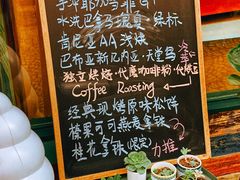 水洗巴拿马瑰夏·绿标
肯尼亚AA浅烘
巴布亚新几内亚·天堂鸟
独立烘焙·代磨咖啡粉·
Coffee Roasting
经典现烤原味松饼
榛果可可燕麦拿铁
桂花拿铁(限定)力推